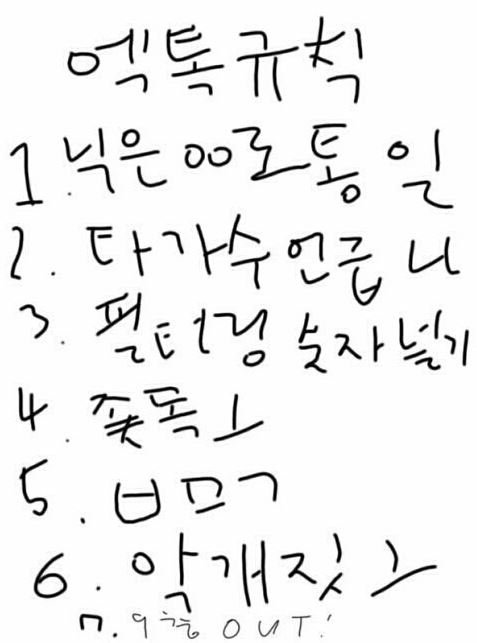 엑톡규칙
1. 닉은 00로 통일
2. 타가수 언급 ㄴ
3. 필터링 숫자 널기
4. 쫒독ㅗ
5. ㅂㅁㄱ
6. 악개짓ㅗ
7. 9층 OUT!